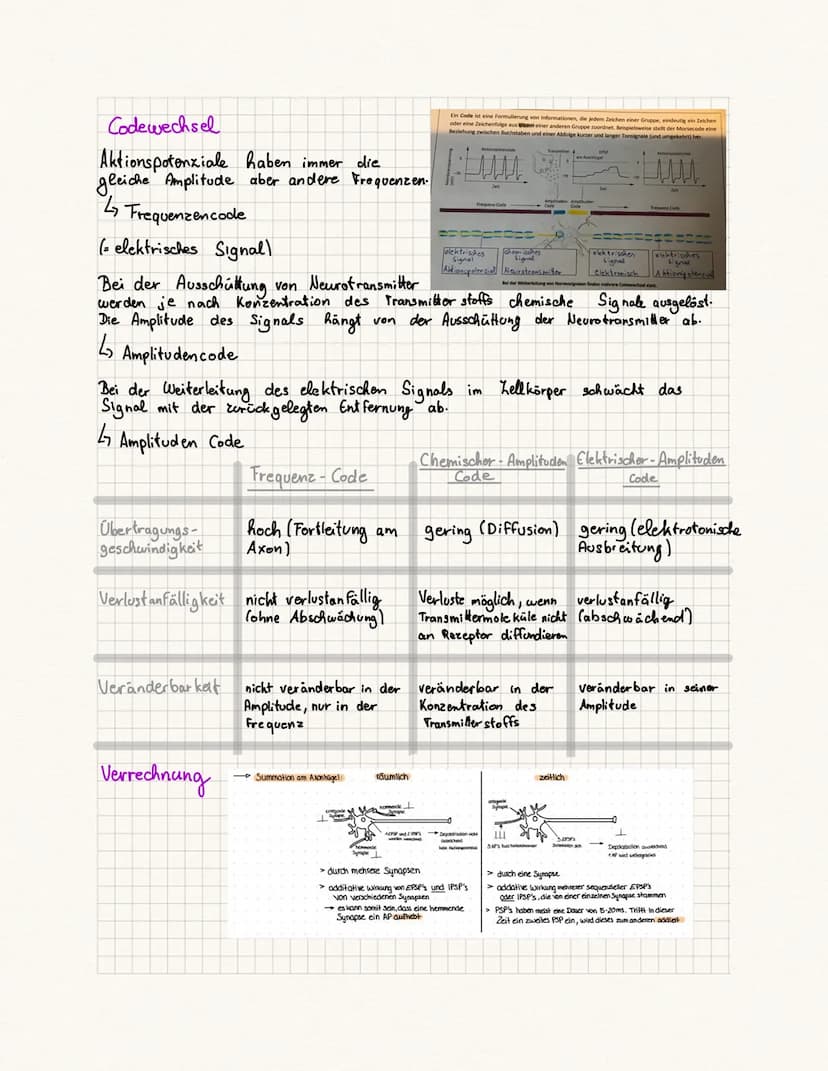 Codewechsel
Aktionspotenziale haben immer die
gleiche Amplitude aber andere Frequenzen.
↳ Frequenzencode
(= elektrisches Signal)
Ein Code ist eine Formulierung von Informationen, die jedem Zeichen einer Gruppe, eindeutig ein Zeichen
oder eine Zeichenfolge aus einer anderen Gruppe zuordnet. Beispielsweise stellt der Morsecode eine
Beziehung zwischen Buchstaben und einer Abfolge kurzer und langer Tonsignale (und umgekehrt) her.
Zeit
Zeit
Zeit
Frequenz-Code
Amplituden-Code
Amplituden-Code
Frequenz-Code
elektrisches Signal
Aktionspotenzial
chemisches Signal
Neurotransmitter
elektrisches Signal
elektrotonisch
elektrisches Signal
Aktionspotenzial
Bei der Ausschüttung von Neurotransmitter
werden je nach Konzentration des Transmitterstoffs chemische Signale ausgelöst.
Die Amplitude des Signals hängt von der Ausschüttung der Neurotransmitter ab.
↳ Amplitudencode
Bei der Weiterleitung des elektrischen Signals im Zellkörper schwächt das
Signal mit der zurückgelegten Entfernung ab.
↳ Amplituden Code
Frequenz-Code
Chemischer-Amplituden
Code
Elektrischer-Amplituden
Code
Übertragungs-
geschwindigkeit
hoch (Fortleitung am
Axon)
gering (Diffusion)
gering (elektrotonische
Ausbreitung)
Verlustanfälligkeit
nicht verlustanfällig
(ohne Abschwächung)
Verluste möglich, wenn
Transmittermoleküle nicht
an Rezeptor diffundieren
verlustanfällig
(abschwächend)
Veränderbarkeit
nicht veränderbar in der
Amplitude, nur in der
Frequenz
veränderbar in der
Konzentration des
Transmitterstoffs
veränderbar in seiner
Amplitude
Verrechnung
→ Summation am Axonhügel:
räumlich
> durch mehrere Synapsen
> additative Wirkung von EPSP's und IPSP's
von verschiedenen Synapsen
→ es kann somit sein, dass eine hemmende
Synapse ein AP aufhebt
zeitlich
> durch eine Synapse
> addative Wirkung mehrerer sequenzieller EPSP's
oder IPSP's, die von einer einzelnen Synapse stammen
> PSP's haben meist eine Dauer von 15-20ms. Tritt in dieser
Zeit ein zweites PSP ein, wird dieses zum anderen addiert